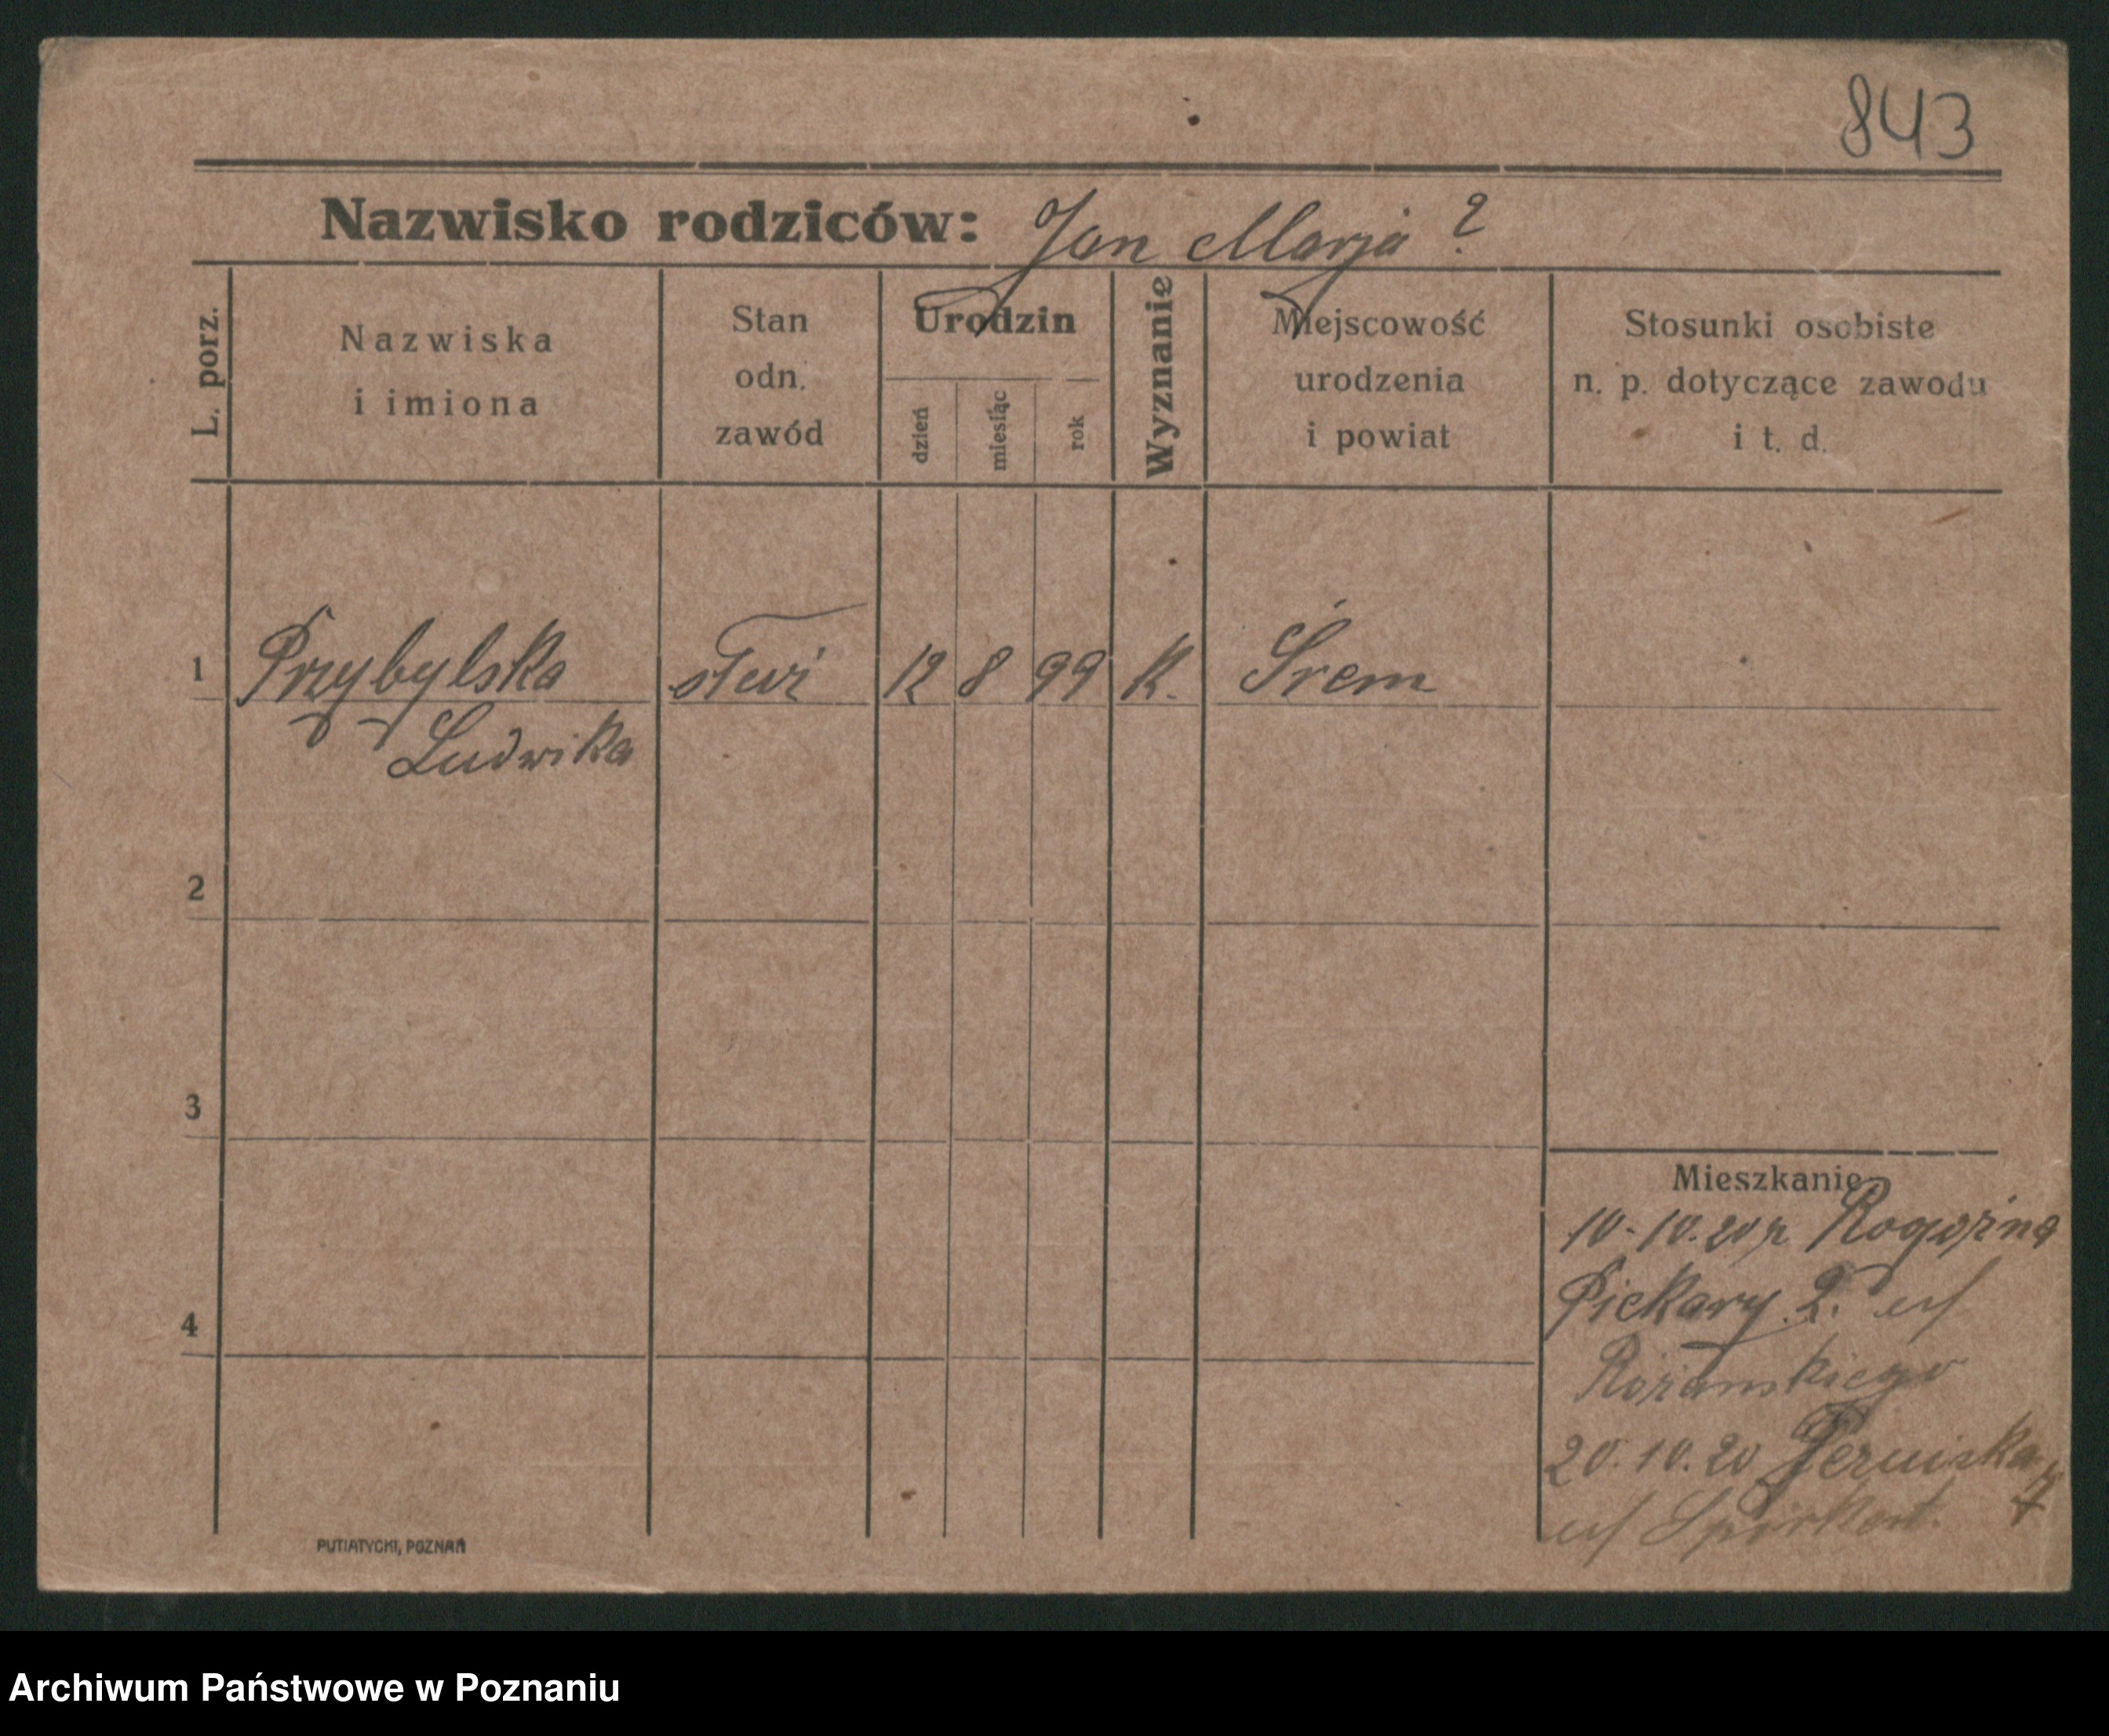 843
Nazwisko rodziców: Jan Marja ?
L. porz.
Nazwiska
i imiona
Stan
odn.
zawód
Urodzin
dzień
miesiąc
rok
Wyznanie
Miejscowość
urodzenia
i powiat
Stosunki osobiste
n. p. dotyczące zawodu
i t. d.
1 Przybylska służ 12 8 99 K. Śrem
Ludwika
2
3
4
Mieszkanie
10-10.20 z Rogoźna
Piekary 2. u/
Różańskiego
20.10.20
u/
PUTIATYCKI, POZNAŃ
Archiwum Państwowe w Poznaniu